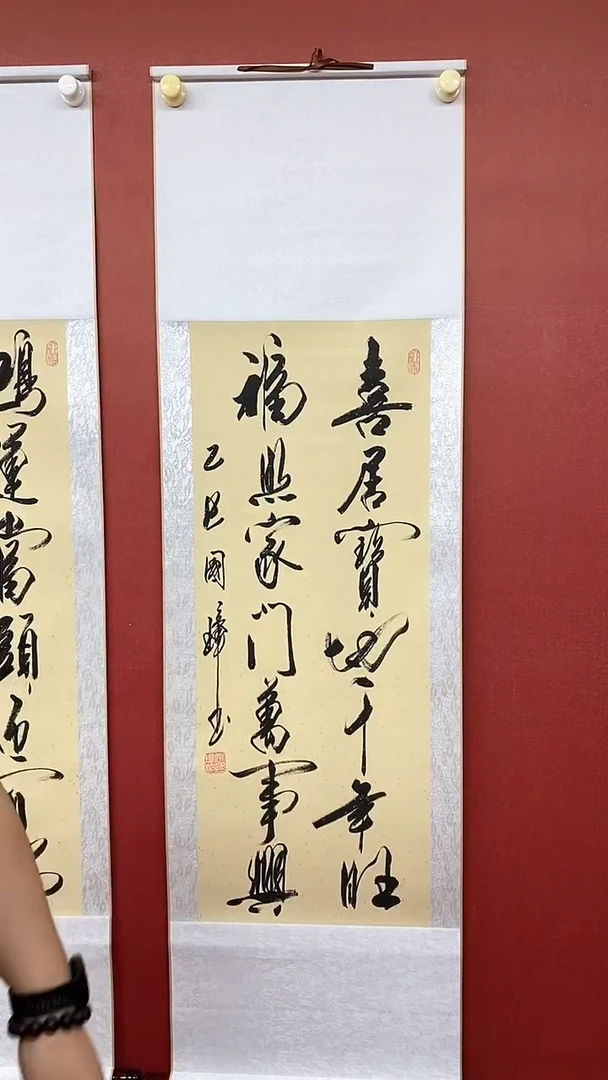 喜居寶地千年旺
福照家門萬事興
乙巳國璋書
鴻運當頭